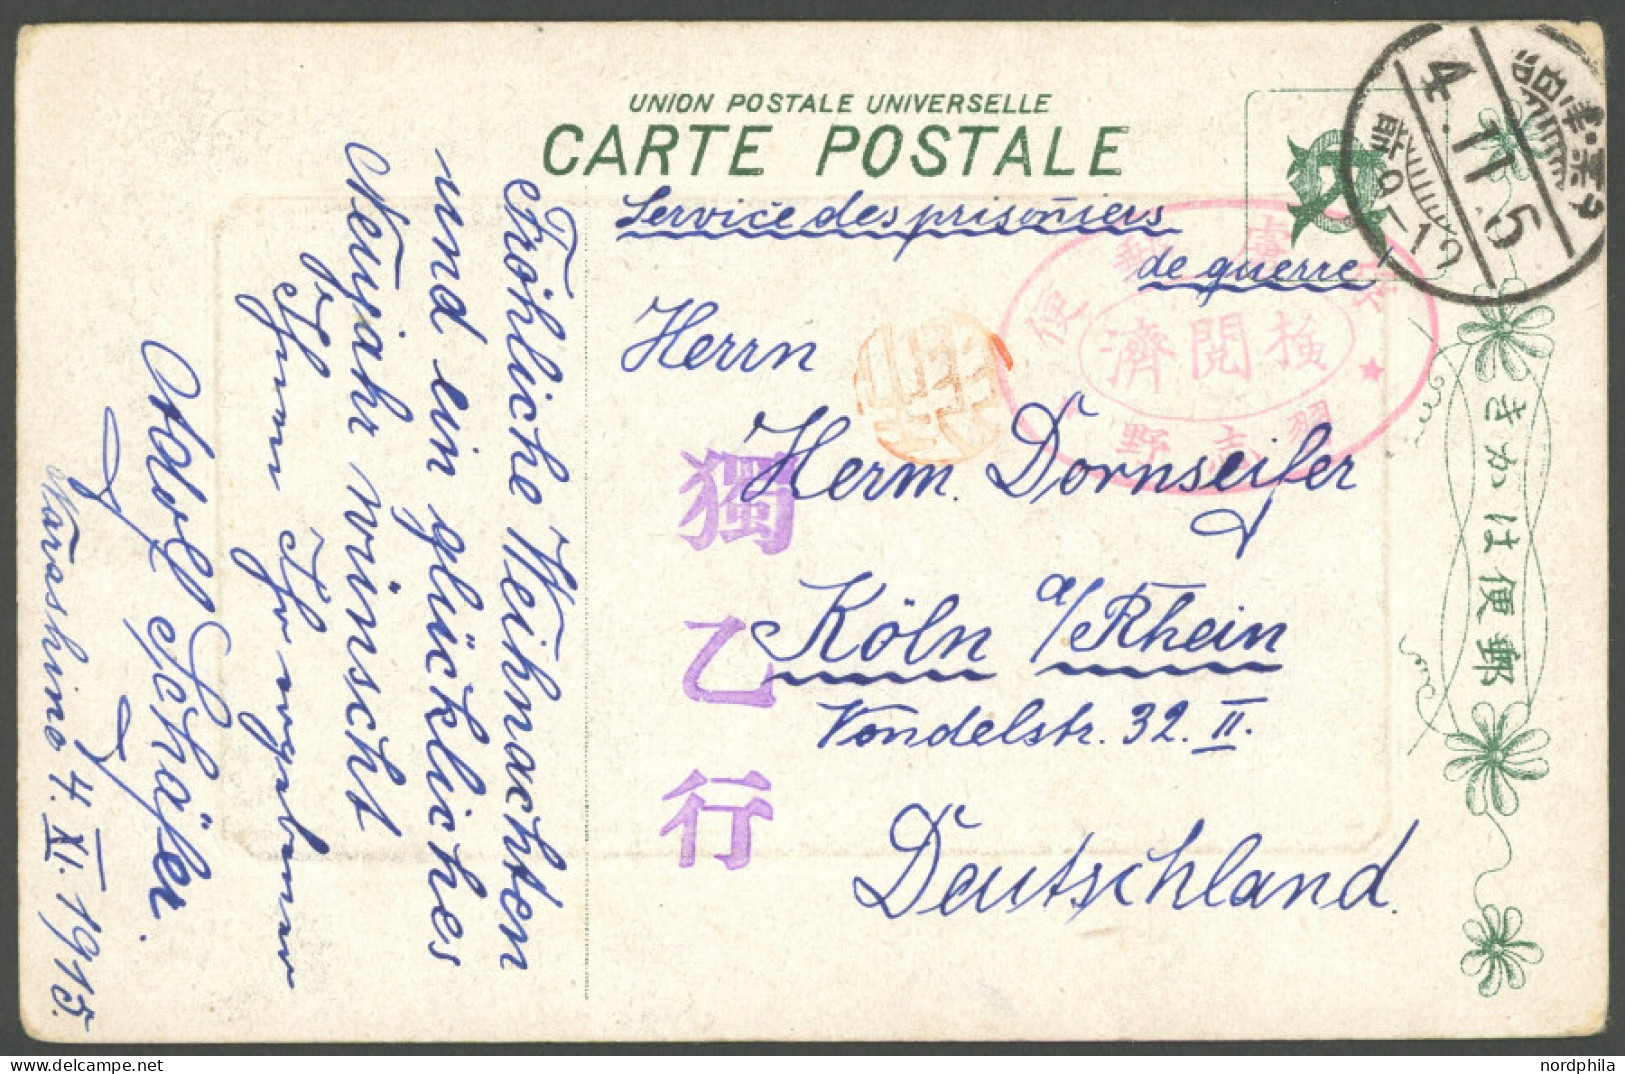 UNION POSTALE UNIVERSELLE
CARTE POSTALE
Service des prisonniers
de guerre
Herrn
Herm. Dornseifer
Köln a/Rhein
Vondelstr. 32. II.
Deutschland.
Fröhliche Weihnachten
und ein glückliches
Neujahr wünscht
Ihnen Ihr ergebener
Adolf Schäfer.
Narashino 4. XI. 1915.
獨乙行
俘虜郵便
検閲濟
習志野
4.11.5
后9-12
きかは便郵
nordphila